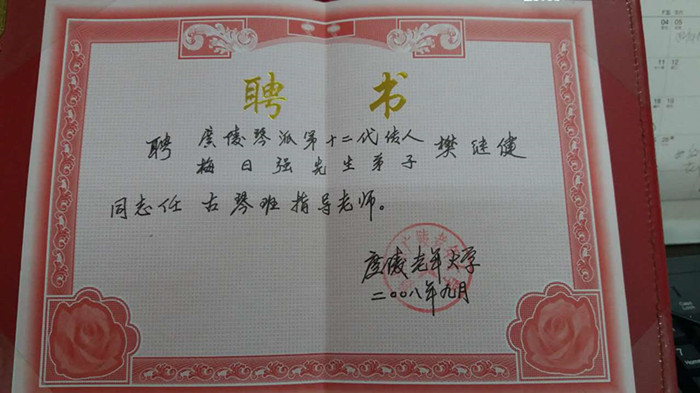 聘 书
聘 广陵琴派第十二代传人 樊继健
梅日强先生弟子
同志任 古琴班指导老师。
广陵老年大学
二〇〇八年九月
04 05
11 12